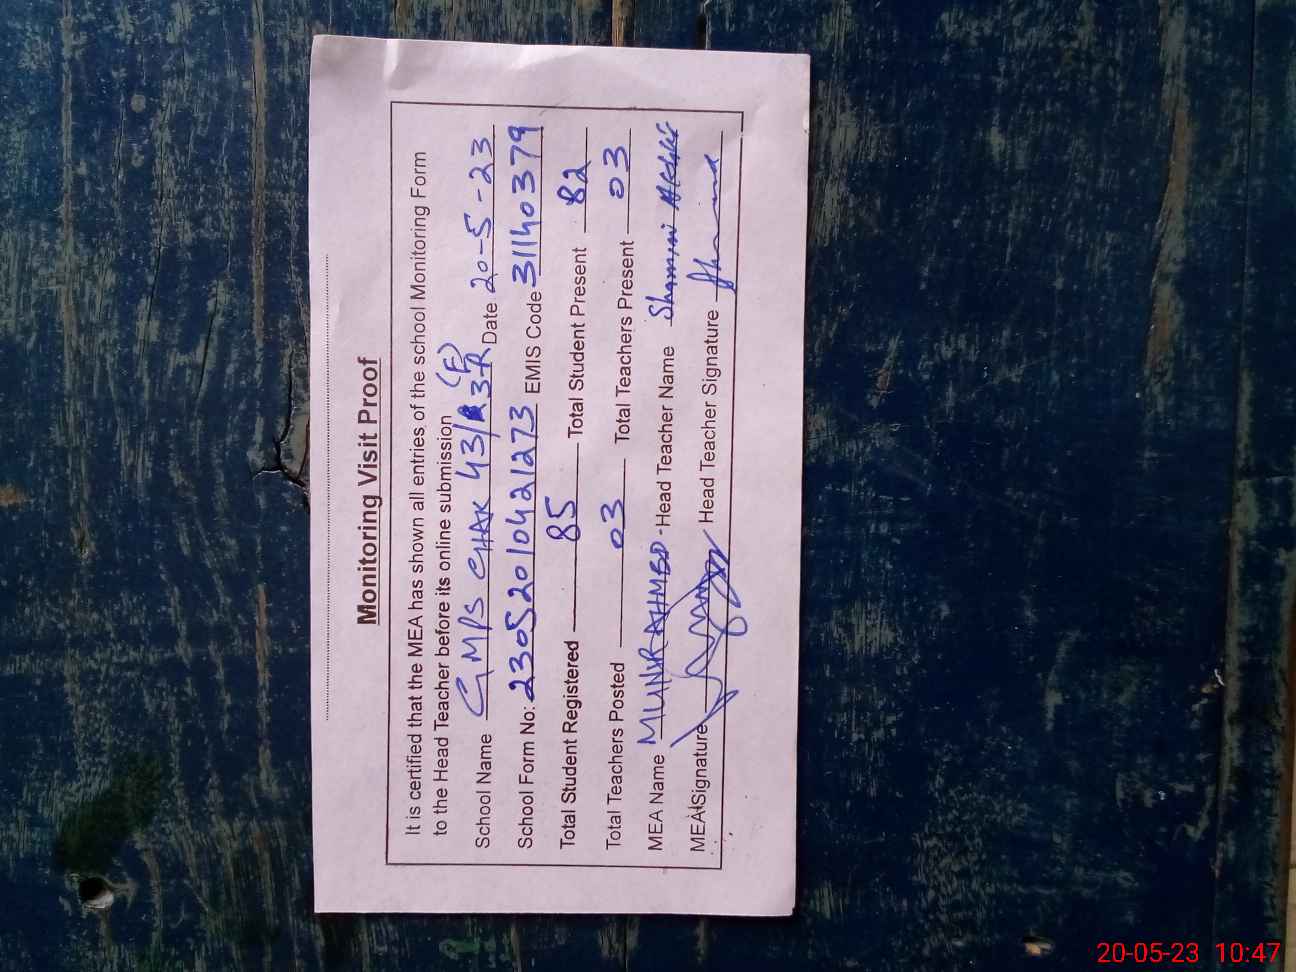 Monitoring Visit Proof
It is certified that the MEA has shown all entries of the school Monitoring Form
to the Head Teacher before its online submission
School Name GMPS CHAK 43/3R (F) Date 20-5-23
School Form No: 23052010421273 EMIS Code 31140379
Total Student Registered 85 Total Student Present 82
Total Teachers Posted 03 Total Teachers Present 03
MEA Name MUNIR AHMED - Head Teacher Name Shamim Akhtar
MEA Signature Head Teacher Signature
20-05-23 10:47